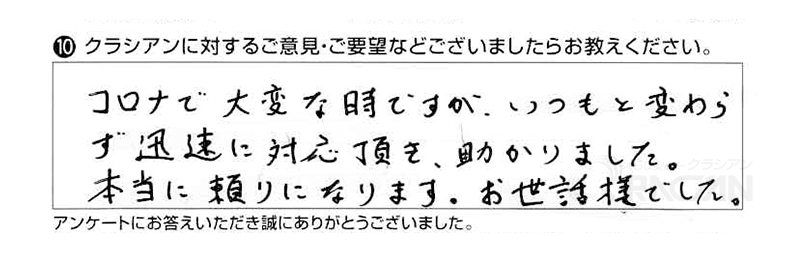 ❿ クラシアンに対するご意見・ご要望などございましたらお教えください。
コロナで大変な時ですが、いつもと変わら
ず迅速に対応頂き、助かりました。
本当に頼りになります。お世話様でした。
クラシアン
アンケートにお答えいただき誠にありがとうございました。